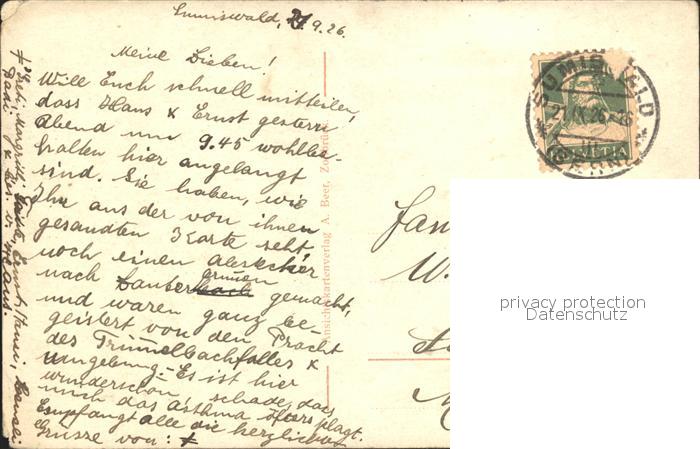 Sumiswald, 21.9.26.
Meine Lieben!
Will Euch schnell mitteilen,
dass Hans & Ernst gestern
Abend um 9.45 wohlbe-
halten hier angelangt
sind. Sie haben, wie
Ihr aus der von ihnen
gesandten Karte seht
noch einen Abstecher
nach Lauterbrunnen gemacht,
und waren ganz be-
geistert von der Pracht
des Trümmelbachfalles &
Umgebung. - Es ist hier
wunderschön, schade, dass
mich das Asthma öfters plagt.
Empfangt alle die herzlichsten
Grüsse von:
Ansichtskartenverlag A. Beer, Zürich
SUMISWALD
21.IX.26
(BERN)
HELVETIA
W.
privacy protection
Datenschutz